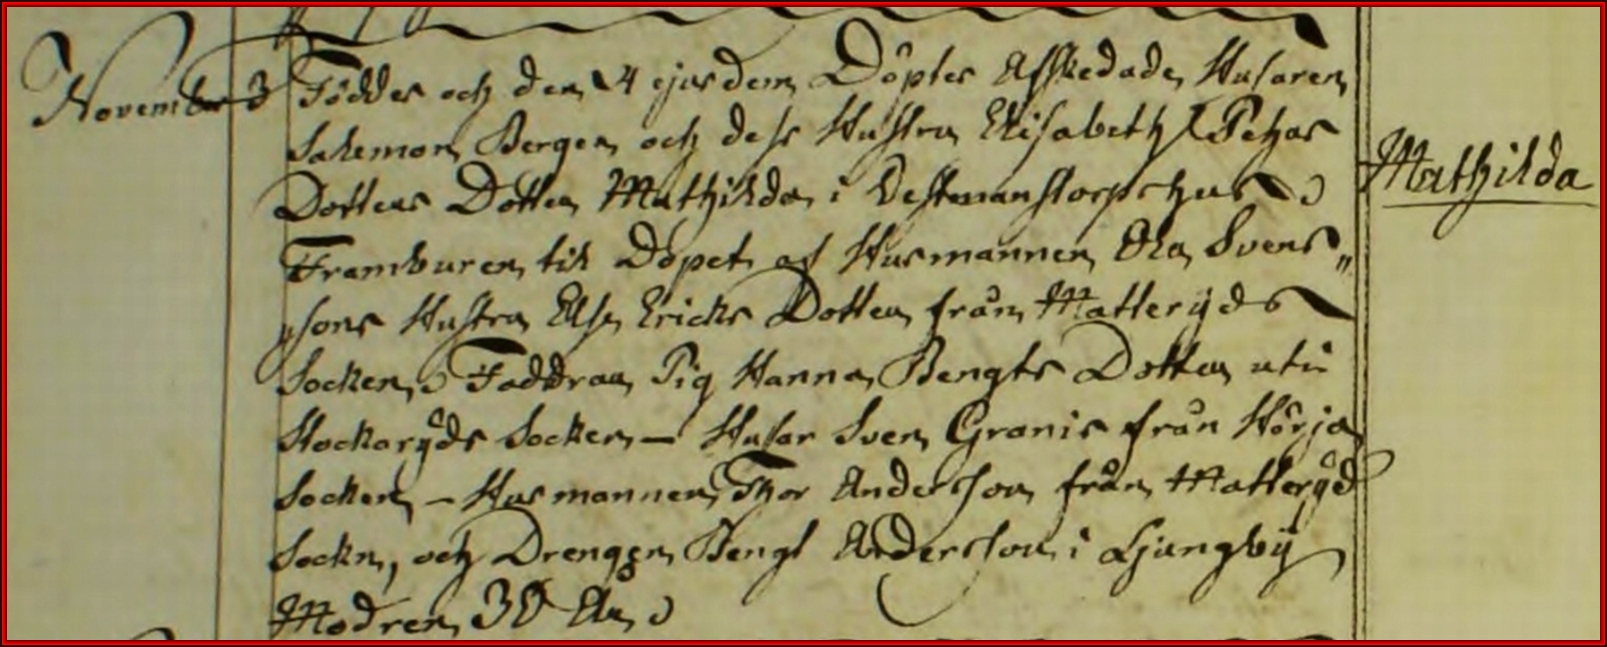 November 3 Föddes och den 4 ejusdem Döptes Afskedade Husaren
Salemon Bergen och dess Hustru Elisabeth Pehrs
Dotters Dotter Mathilda i Vestmanstorps hus
Mathilda
Framburen till Döpet af Husmannen Ola Svens„
sons Hustru Elsa Ericks Dotter från Matteryds
Socken, Faddrar Pig Hanna Bengts Dotter uti
Stockaryds Socken – Husar Sven Granis från Hörja
Socken – Husmannen Thor Andersson från Matteryd
Sockn, och Drengen Bengt Andersson i Ljungby
Modren 38 År